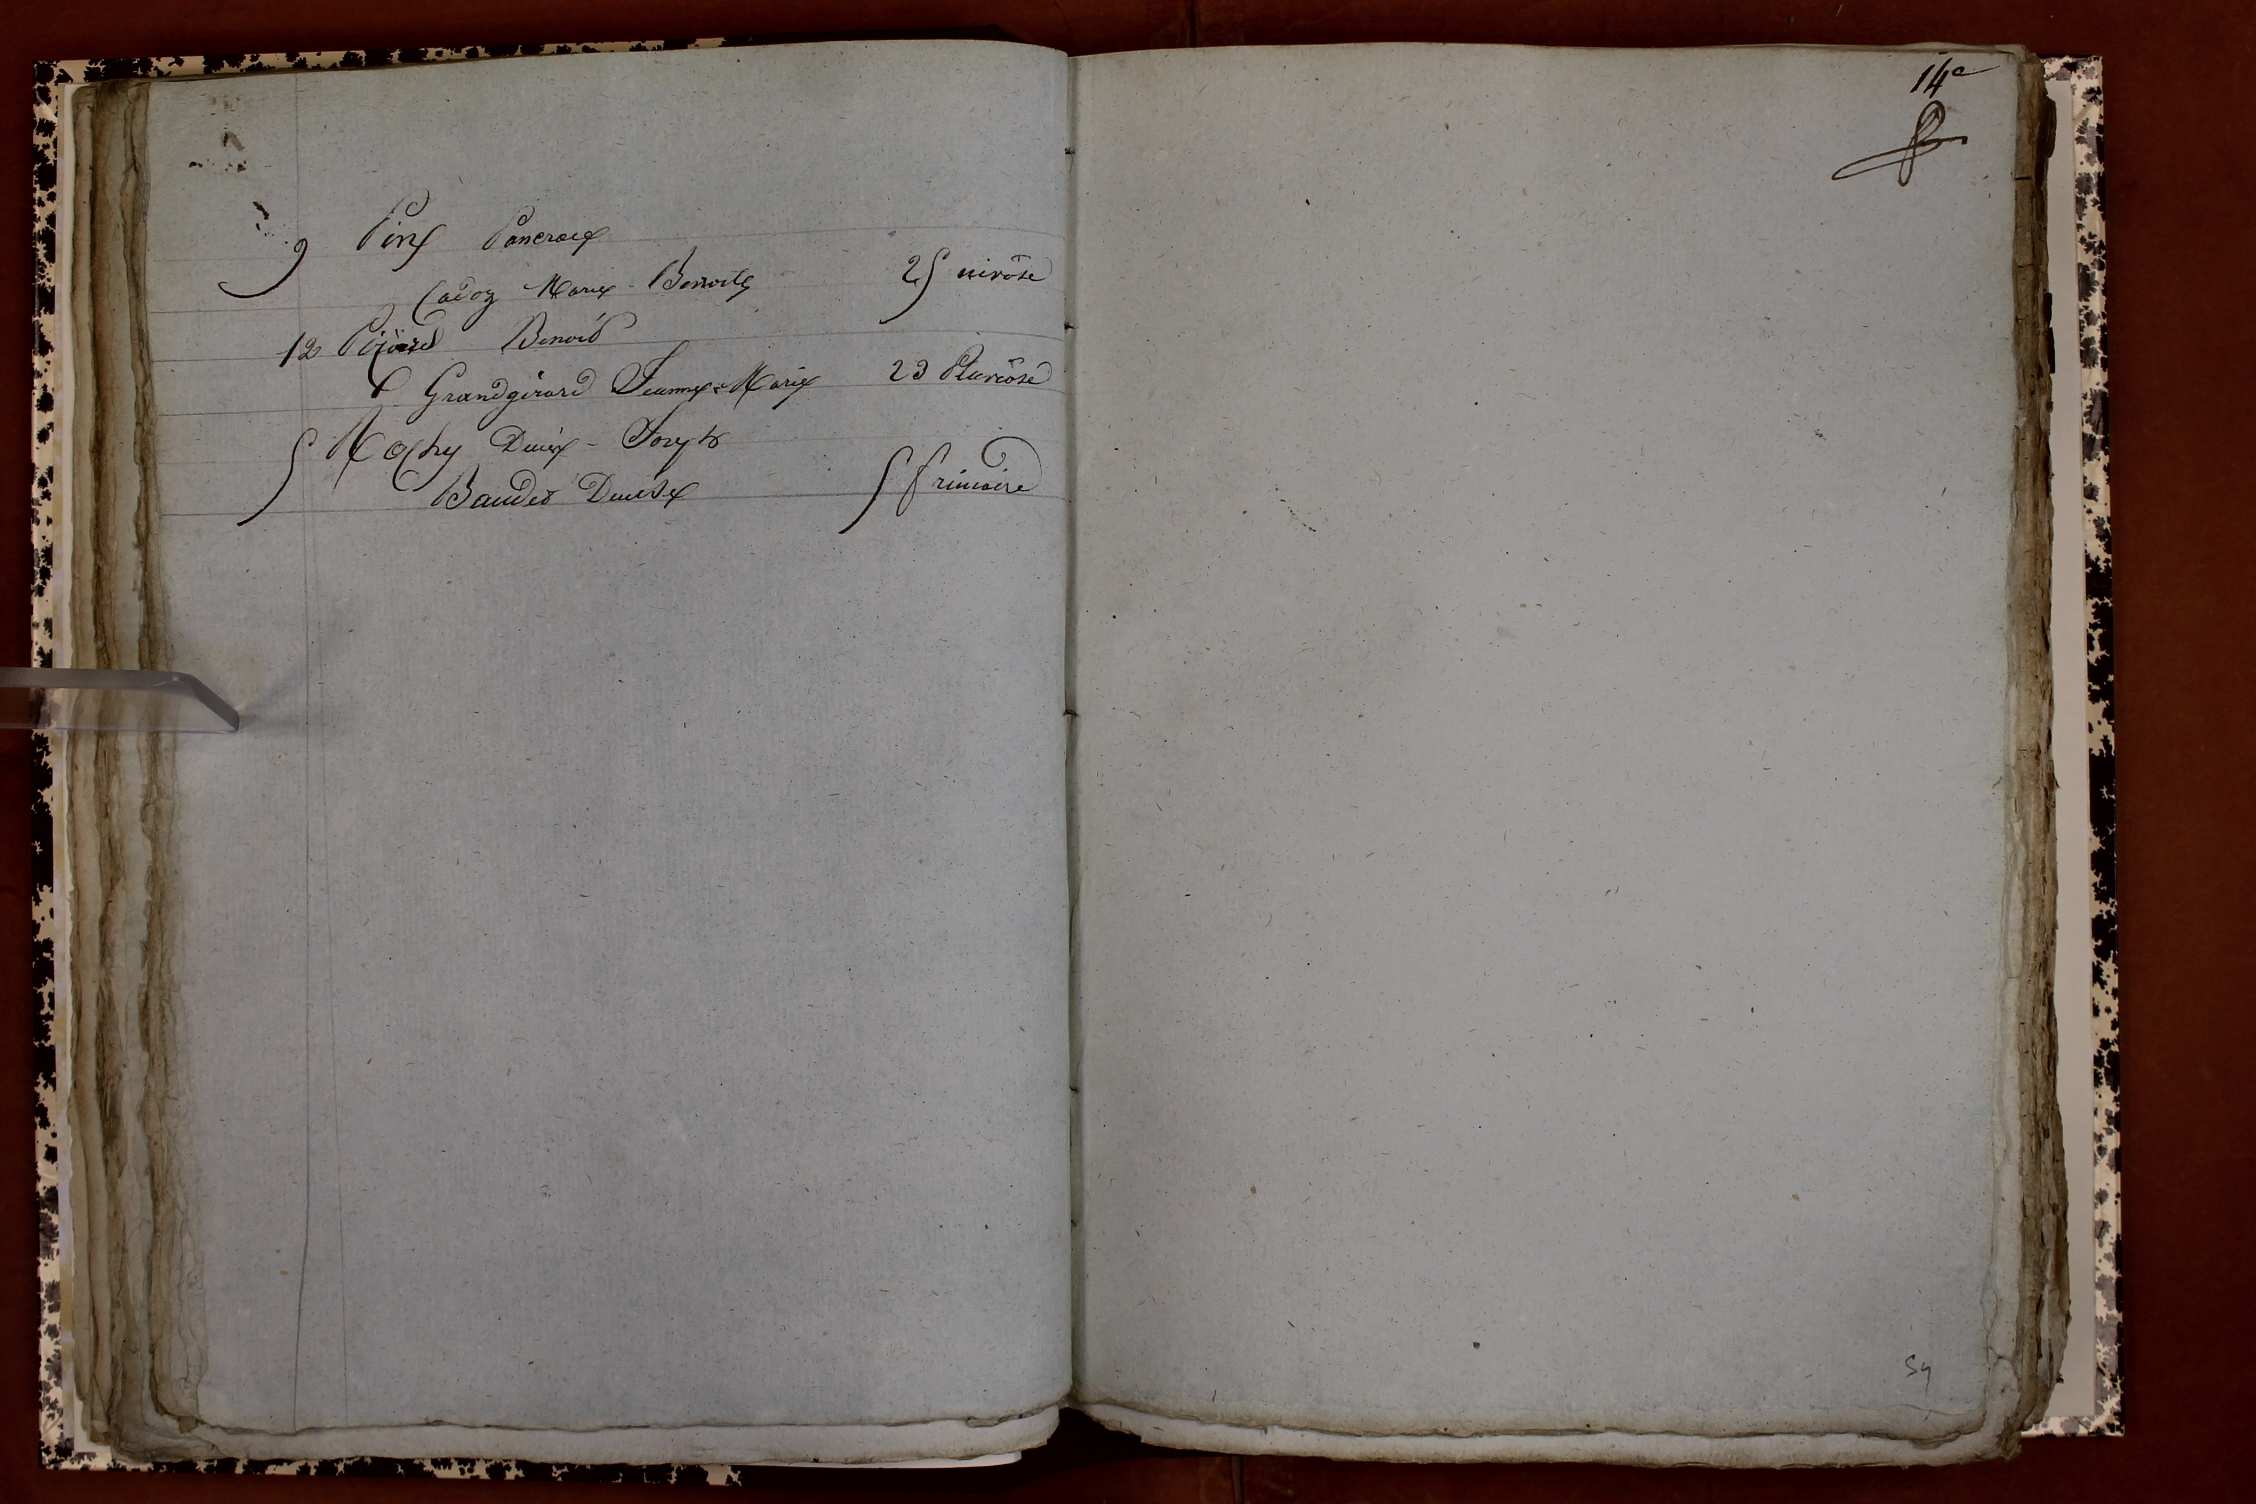 9 Piny Pancrace
Cadoz Marie - Benoite 25 nivôse
12 Benoit
& Grandgirard Jeanne = Marie 23 Pluviôse
5 Rachy - Joseph
Baudet Denise 5 frimaire
14e
59